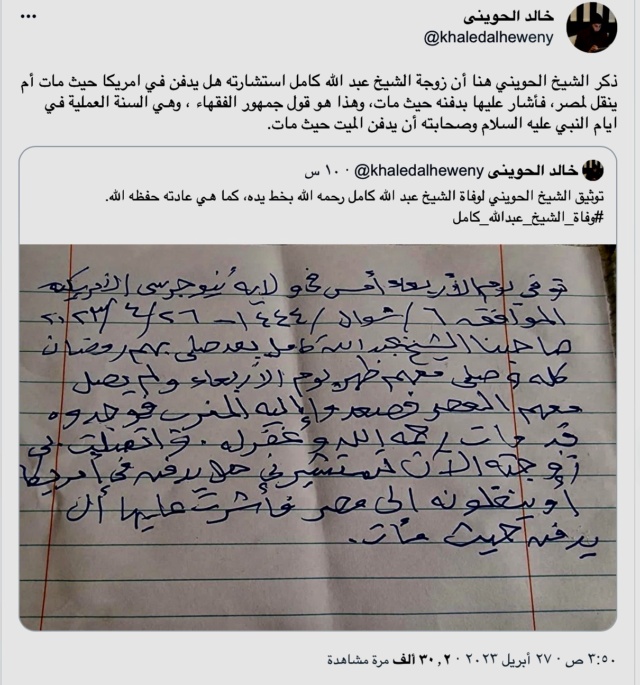 خالد الحوينى
@khaledalheweny
ذكر الشيخ الحويني هنا أن زوجة الشيخ عبد الله كامل استشارته هل يدفن في امريكا حيث مات أم
ينقل لمصر، فأشار عليها بدفنه حيث مات، وهذا هو قول جمهور الفقهاء ، وهي السنة العملية في
ايام النبي عليه السلام وصحابته أن يدفن الميت حيث مات.
خالد الحوينى @khaledalheweny · ١٠ س
توثيق الشيخ الحويني لوفاة الشيخ عبد الله كامل رحمه الله بخط يده، كما هي عادته حفظه الله.
#وفاة_الشيخ_عبدالله_كامل
توفي يوم الأربعاء أمس في ولاية نيوجرسى الأمريكية
الموافق ٦/ شوال / ١٤٤٤ - ٢٦/ ٤/ ٢٠٢٣
صاحبنا الشيخ عبد الله كامل بعد صلى بهم رمضان
كله وصلى معهم ظهر يوم الأربعاء ولم يصل
معهم العصر فصعدوا إليه المغرب فوجدوه
قد مات رحمه الله وغفر له. واتصلت بي
زوجته الآن تستشيرني هل يدفن في أمريكا
أو ينقلونه إلى مصر فأشرت عليها أن
يدفن حيث مات.
٣:٥٠ ص · ٢٧ أبريل ٢٠٢٣ · ٣٠,٢ ألف مرة مشاهدة